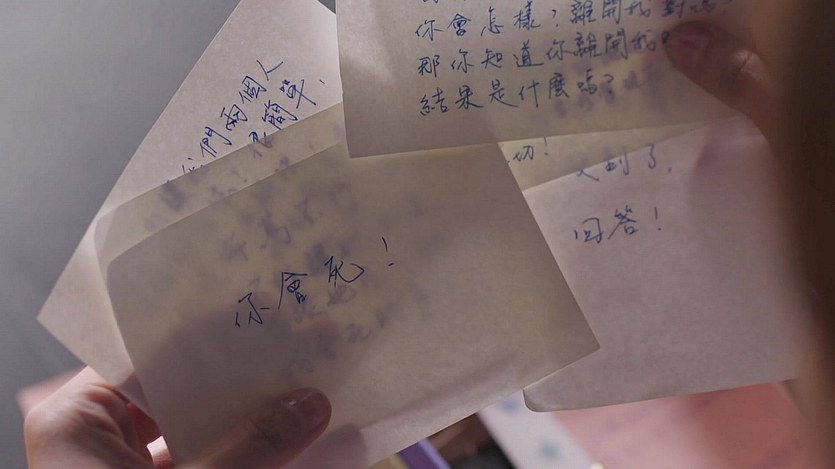 你會怎樣？離開我對嗎？
那你知道你離開我
結果是什麼嗎？
們兩個人
簡單，
切！
到了，
回答！
你會死！